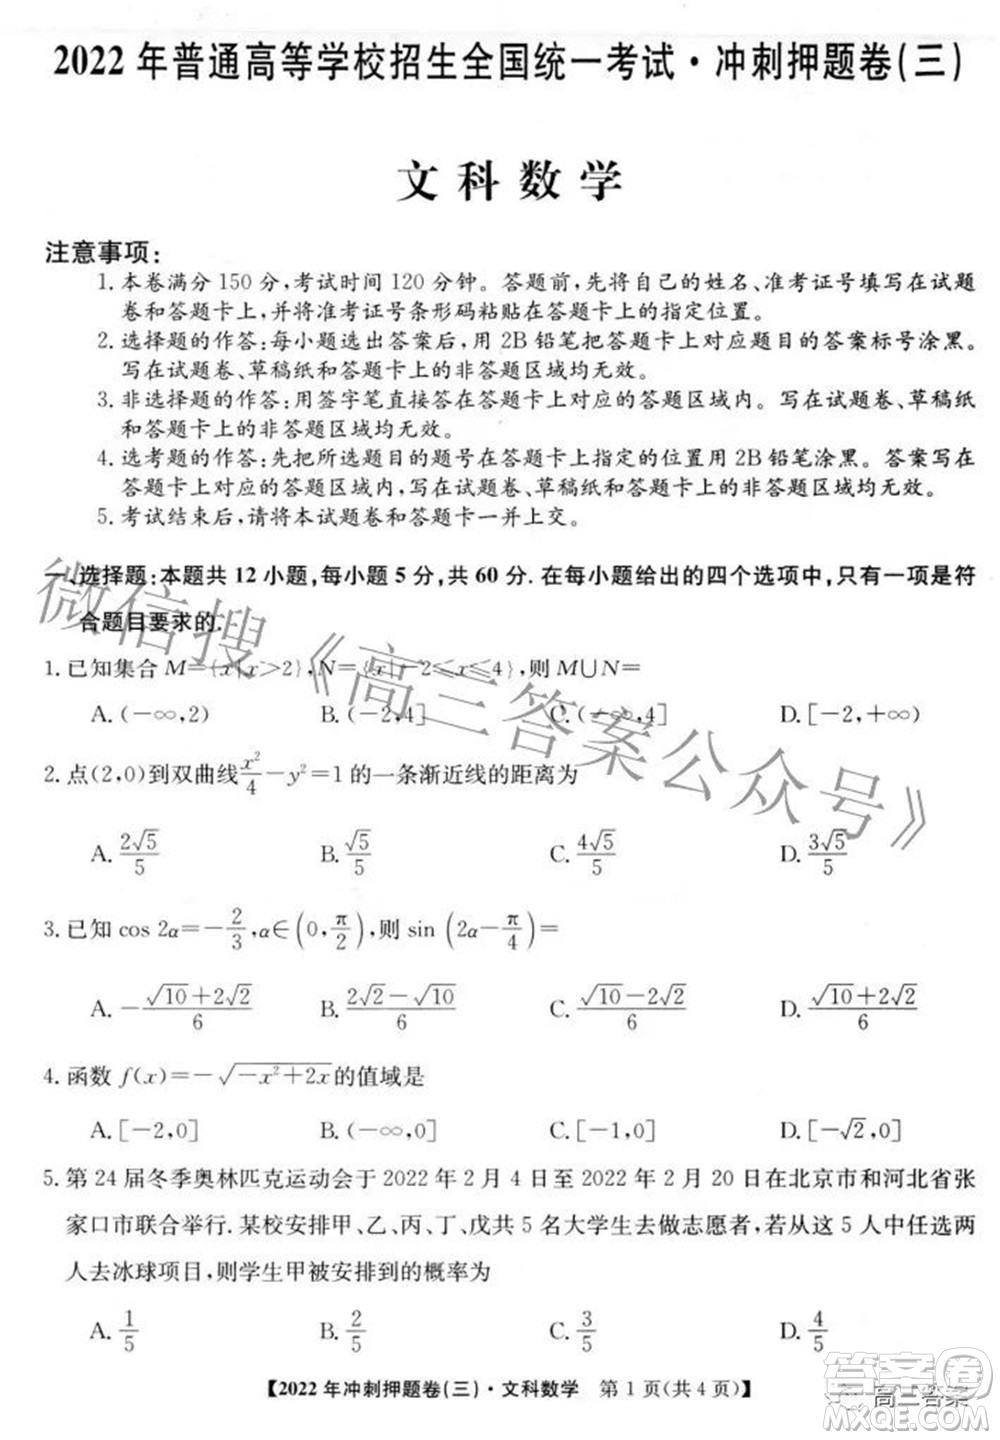 2022年普通高等学校招生全国统一考试·冲刺押题卷(三)
文科数学
注意事项:
1. 本卷满分150分,考试时间120分钟。答题前,先将自己的姓名、准考证号填写在试题
卷和答题卡上,并将准考证号条形码粘贴在答题卡上的指定位置。
2. 选择题的作答:每小题选出答案后,用2B铅笔把答题卡上对应题目的答案标号涂黑。
写在试题卷、草稿纸和答题卡上的非答题区域均无效。
3. 非选择题的作答:用签字笔直接答在答题卡上对应的答题区域内。写在试题卷、草稿纸
和答题卡上的非答题区域均无效。
4. 选考题的作答:先把所选题目的题号在答题卡上指定的位置用2B铅笔涂黑。答案写在
答题卡上对应的答题区域内,写在试题卷、草稿纸和答题卡上的非答题区域均无效。
5. 考试结束后,请将本试题卷和答题卡一并上交。
一、选择题:本题共12小题,每小题5分,共60分.在每小题给出的四个选项中,只有一项是符
合题目要求的.
1. 已知集合 M={x|x>2},N={x|-2≤x≤4},则M∪N=
A. (-∞,2) B. (-2,4] C. (-∞,4] D. [-2,+∞)
2. 点(2,0)到双曲线x²/4-y²=1的一条渐近线的距离为
A. 2√5/5 B. √5/5 C. 4√5/5 D. 3√5/5
3. 已知 cos 2α=-2/3,α∈(0,π/2),则 sin(2α-π/4)=
A. -(√10+2√2)/6 B. (2√2-√10)/6 C. (√10-2√2)/6 D. (√10+2√2)/6
4. 函数 f(x)=-√(-x²+2x)的值域是
A. [-2,0] B. (-∞,0] C. [-1,0] D. [-√2,0]
5. 第24届冬季奥林匹克运动会于2022年2月4日至2022年2月20日在北京市和河北省张
家口市联合举行.某校安排甲、乙、丙、丁、戊共5名大学生去做志愿者,若从这5人中任选两
人去冰球项目,则学生甲被安排到的概率为
A. 1/5 B. 2/5 C. 3/5 D. 4/5
【2022年冲刺押题卷(三)·文科数学 第1页(共4页)】
微信搜《高三答案公众号》
高三答案
答案圈
MXQE.COM